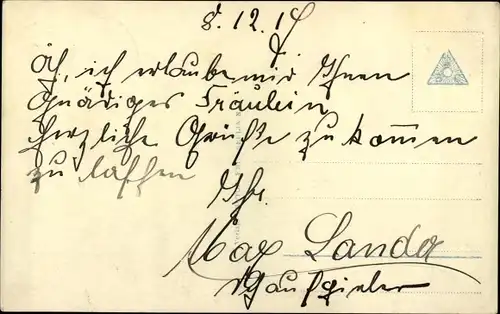 8.12.19
ich erlaube mir Ihnen
Gnädiges Fräulein
herzliche Grüße zu kommen
zu lassen
Ihr
Max Landa
Schauspieler